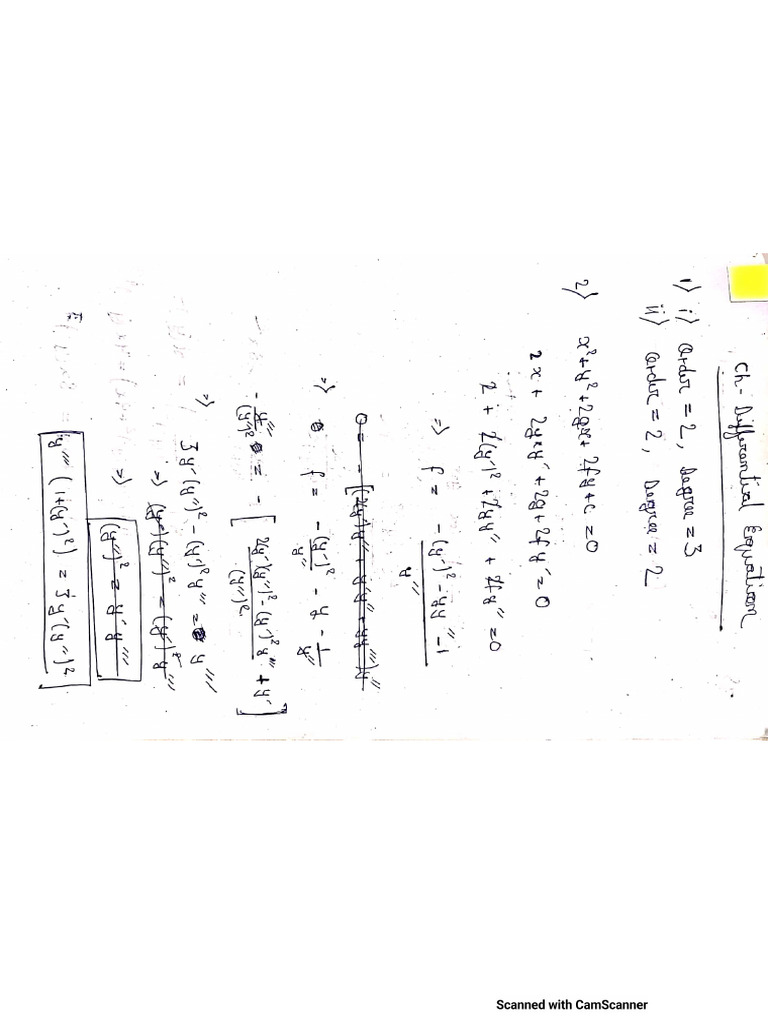 Ch- Differential Equation
1) i) Order = 2, Degree = 3
ii) Order = 2, Degree = 2
2) x² + y² + 2gx + 2fy + c = 0
2x + 2yxy' + 2g + 2fy' = 0
2 + 2(y')² + 2yy'' + 2fy'' = 0
=> f = -(y')² - yy'' - 1 / y''
=> f = -(y')² / y'' - y - 1 / y''
-y''' / (y'')² = -[2y'(y'')² - (y')² y''' / (y'')² + y']
=> 3y'(y'')² - (y')² y''' = y'''
=> (y')(y'')² = (y')² y'''
=> (y'')² = y'y'''
y''' (1+(y')²) = 3y'(y'')²
Scanned with CamScanner